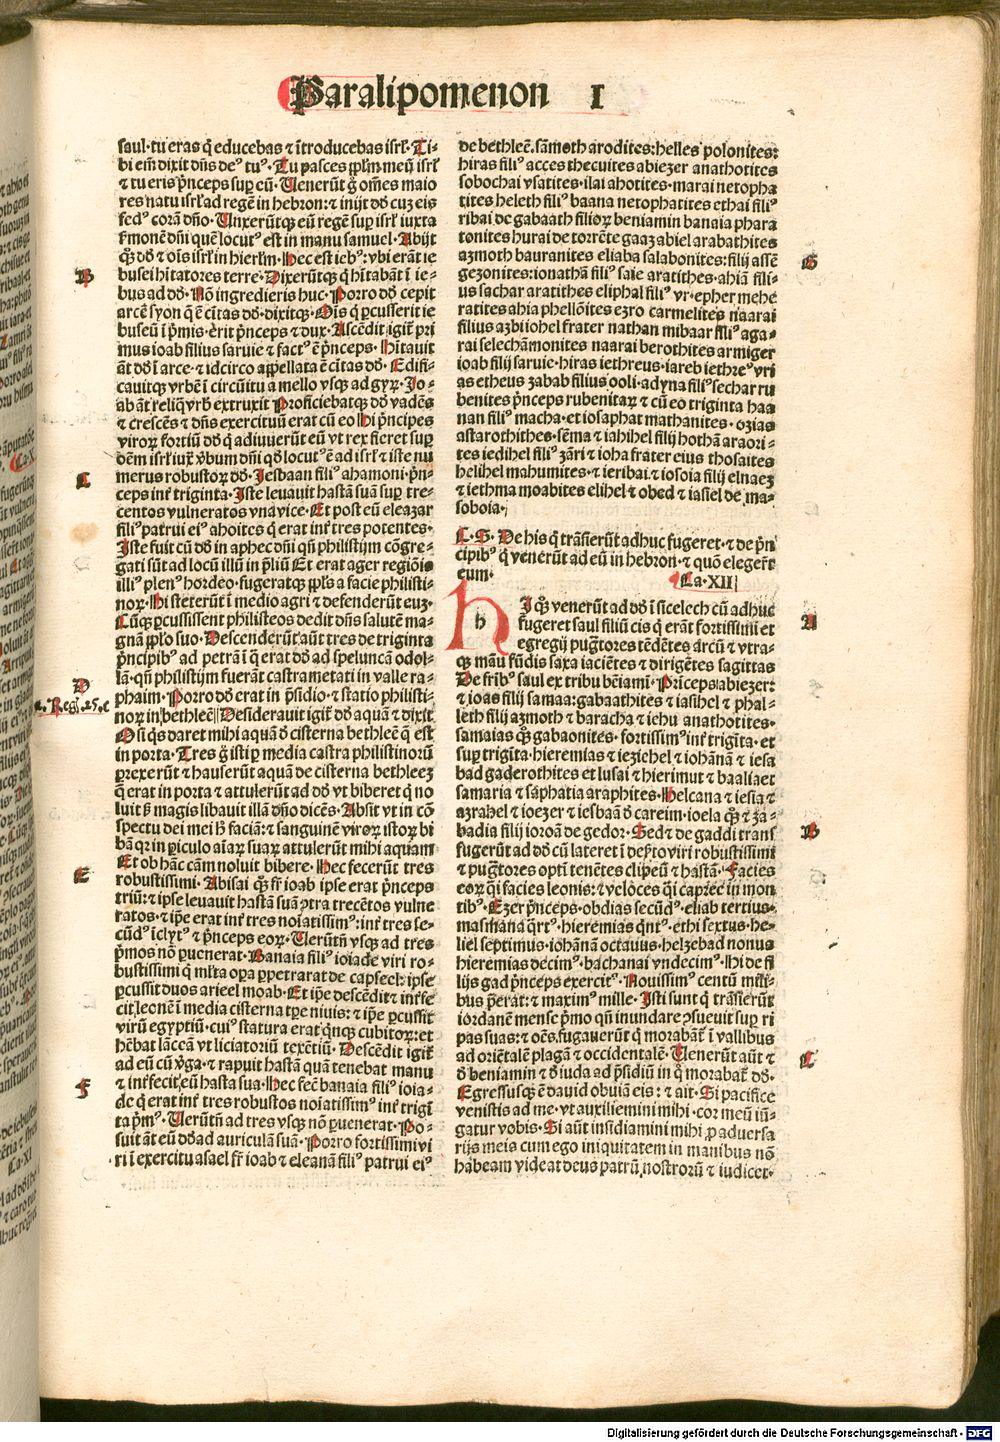 Paralipomenon I
saul·tu eras q̄ educebas ⁊ ītroducebas isrl̄·Ti-
bi em̄ dixit dn̄s deꝰ tuꝰ·Tu pasces pp̄lm meū isrl̄
⁊ tu eris p̄nceps suꝑ eū·Uenerūt g̊ om̄es maio
res natu isrl̄ ad regē in hebron:⁊ inijt dd̄ cuz eis
fedꝰ corā dn̄o·Unxerūtqꝫ eū regē suꝑ isrl̄ iuxta
ẜmonē dn̄i quē locutꝰ est in manu samuel·Abijt
qꝫ dd̄ ⁊ oīs isrl̄ in hierlm̄·Hec est iebꝰ:vbi erāt ie
busei hītatores terre·Dixerūtqꝫ q̄ hītabāt ī ie-
bus ad dd̄·Nō ingredieris huc·Porro dd̄ cepit
arcē syon q̄ ē cītas dd̄·dixitqꝫ·Oīs q̄ ꝑcusserit ie
buseū ī p̄mis·erit p̄nceps ⁊ dux·Ascēdit igit̄ pri
mus ioab filius saruie ⁊ factꝰ ē p̄nceps·Hītauit
āt dd̄ ī arce·⁊ idcirco appellata ē cītas dd̄·Edifi-
cauitqꝫ vrbē ī circūitu a mello vsqꝫ ad gyꝝ·Io-
ab āt reliq̄ vrb̄ extruxit Proficiebatqꝫ dd̄ vadēs
⁊ crescēs ⁊ dn̄s exercituū erat cū eo Hi p̄ncipes
viroꝝ fortiū dd̄ q̄ adiuuerūt eū vt rex fieret suꝑ
oēm isrl̄ iux̄ ṽbum dn̄i qd̄ locutꝰ ē ad isrl̄ ⁊ iste nu
merus robustoꝝ dd̄·Iesbaan filiꝰ ahamoni·p̄n-
ceps int̄ triginta·Iste leuauit hastā suā suꝑ tre-
centos vulneratos vna vice·Et post eū eleazar
filiꝰ patrui eiꝰ ahoites q̄ erat int̄ tres potentes·
Iste fuit cū dd̄ in aphec dn̄i qn̄ philistijm cōgre-
gati sūt ad locū illū in p̄liū Et erat ager regiōis
illiꝰ plenꝰ hordeo·fugeratqꝫ pp̄ls a facie philisti-
noꝝ·Hi steterūt ī medio agri ⁊ defenderūt euꝫ·
Cūqꝫ ꝑcussissent philisteos dedit dn̄s salutē ma-
gnā pp̄lo suo·Descenderūt aūt tres de triginta
p̄ncipibꝰ ad petrā ī q̄ erat dd̄ ad speluncā odol-
lā·qn̄ philistijm fuerāt castra metati in valle ra-
phaim·Porro dd̄ erat in p̄sidio·⁊ statio philisti-
noꝝ in bethleē Desiderauit igit̄ dd̄ aquā ⁊ dixit
O si qs̄ daret mihi aquā d̄ cisterna bethleē q̄ est
in porta·Tres g̊ isti ꝑ media castra philistinorū
ꝑrexerūt ⁊ hauserūt aquā de cisterna bethleez
q̄ erat in porta ⁊ attulerūt ad dd̄ vt biberet q̄ no
luit sꝫ magis libauit illā dn̄o dicēs·Absit vt in cō
spectu dei mei hꝫ faciā:⁊ sanguinē viroꝝ istoꝝ bi
bā qꝛ in ꝑiculo aīaꝝ suaꝝ attulerūt mihi aquam
Et ob hāc cām noluit bibere·Hec fecerūt tres
robustissimi·Abisai qꝫ fr̄ ioab ipse erat p̄nceps
triū:⁊ ipse leuauit hastā suā ↄtra trecētos vulne
ratos·⁊ ip̄e erat int̄ tres noīatissimꝰ:int̄ tres se-
cūdꝰ īclytꝰ ⁊ p̄nceps eoꝝ·Uerūtn̄ vsqꝫ ad tres
p̄mos nō ꝑuenerat·Banaia filiꝰ ioiade viri ro-
bustissimi q̄ mlt̄a oꝑa ꝑpetrarat de capseel:ipse
ꝑcussit duos arieel moab·Et ip̄e descēdit ⁊ int̄fe
cit leonē ī media cisterna tꝑe niuis:⁊ ip̄e ꝑcussit
virū egyptiū·cuiꝰ statura erat qn̄qꝫ cubitoꝝ:et
hēbat lāceā vt liciatoriū texētiū·Descēdit igit̄
ad eū cū ṽga·⁊ rapuit hastā quā tenebat manu
⁊ int̄fecit eū hasta sua·Hec fec̄ banaia filiꝰ ioia-
de q̄ erat int̄ tres robustos noīatissimꝰ int̄ trigī
ta p̄mꝰ·Uerūtn̄ ad tres vsqꝫ nō ꝑuenerat·Po-
suit āt eū dd̄ ad auriculā suā·Porro fortissimi vi
ri ī exercitu asael fr̄ ioab ⁊ eleanā filiꝰ patrui eiꝰ
B
C
D
2. Regi. 25. c
E
F
de bethleē·sāmoth arodites:helles polonites:
hiras filiꝰ acces thecuites abiezer anathotites
sobochai vsatites·ilai ahotites·marai netopha
tites heleth filiꝰ baana netophatites ethai filiꝰ
ribai de gabaath filioꝝ beniamin banaia phara
tonites hurai de torrēte gaaz abiel arabathites
azmoth bauranites eliaba salabonites:filij assē
gezonites:ionathā filiꝰ saie aratithes·ahiā fili-
us sachar aratithes eliphal filiꝰ vr·epher mehe
ratites ahia phellōites ezro carmelites naarai
filius azbi iohel frater nathan mibaar filiꝰ aga-
rai selechāmonites naarai berothites armiger
ioab filij saruie·hiras iethreus·iareb iethreꝰ vri
as etheus zabab filius ooli·adyna filiꝰ sechar ru
benites p̄nceps rubenitaꝝ ⁊ cū eo triginta haa
nan filiꝰ macha·et iosaphat mathanites·ozias
astarothithes·sēma ⁊ iahihel filij hothā araori-
tes iedihel filiꝰ zāri ⁊ ioha frater eius thosaites
helihel mahumites ⁊ ieribai ⁊ iosoia filij elnaez
⁊ iethma moabites elihel ⁊ obed ⁊ iasiel de ma-
soboia·
C·S·De his q̄ trāsierūt adhuc fugeret·⁊ de p̄n
cipibꝰ q̄ venerūt ad eū in hebron·⁊ quō elegert̄
eum· Ca·XII
h
Iqꝫ venerūt ad dd̄ ī sicelech cū adhuc
fugeret saul filiū cis q̄ erāt fortissimi et
egregij pugtores tēdētes arcū ⁊ vtra-
qꝫ māu fūdis saxa iaciētes ⁊ dirigētes sagittas
De frībꝰ saul ex tribu bēiami·Prīceps abiezer:
⁊ ioas filij samaa:gabaathites ⁊ iasihel ⁊ phal-
leth filij azmoth ⁊ baracha ⁊ iehu anathotites·
samaias qꝫ gabaonites·fortissimꝰ int̄ trigīta·et
suꝑ trigīta·hieremias ⁊ iezichel ⁊ iohānā ⁊ ieza
bad gaderothites et lusai ⁊ hierimut ⁊ baalia et
samaria ⁊ saphatia araphites·Helcana ⁊ iesia ⁊
azrahel ⁊ ioezer ⁊ iesbaā d̄ careim·ioela qꝫ ⁊ za-
badia filij ioroā de gedor·Sed ⁊ de gaddi trans
fugerūt ad dd̄ cū lateret ī desto viri robustissimi
⁊ pugtores opti tenētes clipeū ⁊ hastā·Facies
eoꝝ qi facies leonis:⁊ velōces qi capree in mon
tibꝰ·Ezer p̄nceps·obdias secūdꝰ·eliab tertius·
masmana qr̄tꝰ·hieremias qn̄tꝰ·ethi sextus·he-
liel septimus·iohānā octauus·helzebad nonus
hieremias decimꝰ·bachanai vndecimꝰ·Hi de fi
lijs gad p̄nceps exercitꝰ·Nouissimꝰ centū mili-
bus p̄erat:⁊ maximꝰ mille·Isti sunt q̄ trāsierūt
iordanē mense p̄mo qn̄ inundare ↄsueuit suꝑ ri
pas suas:⁊ oēs fugauerūt q̄ morabāt̄ ī vallibus
ad oriētalē plagā ⁊ occidentalē·Uenerūt aūt ⁊
d̄ beniamin ⁊ d̄ iuda ad p̄sidiū in q̄ morabat̄ dd̄·
Egressusqꝫ ē dauid obuiā eis:⁊ ait·Si pacifice
venistis ad me·vt auxiliemini mihi·cor meū iū-
gatur vobis·Si aūt insidiamini mihi ꝓ aduersa
rijs meis cum ego iniquitatem in manibus nō
habeam videat deus patrū nostrorū ⁊ iudicet·
G
A
B
C
Digitalisierung gefördert durch die Deutsche Forschungsgemeinschaft - DFG